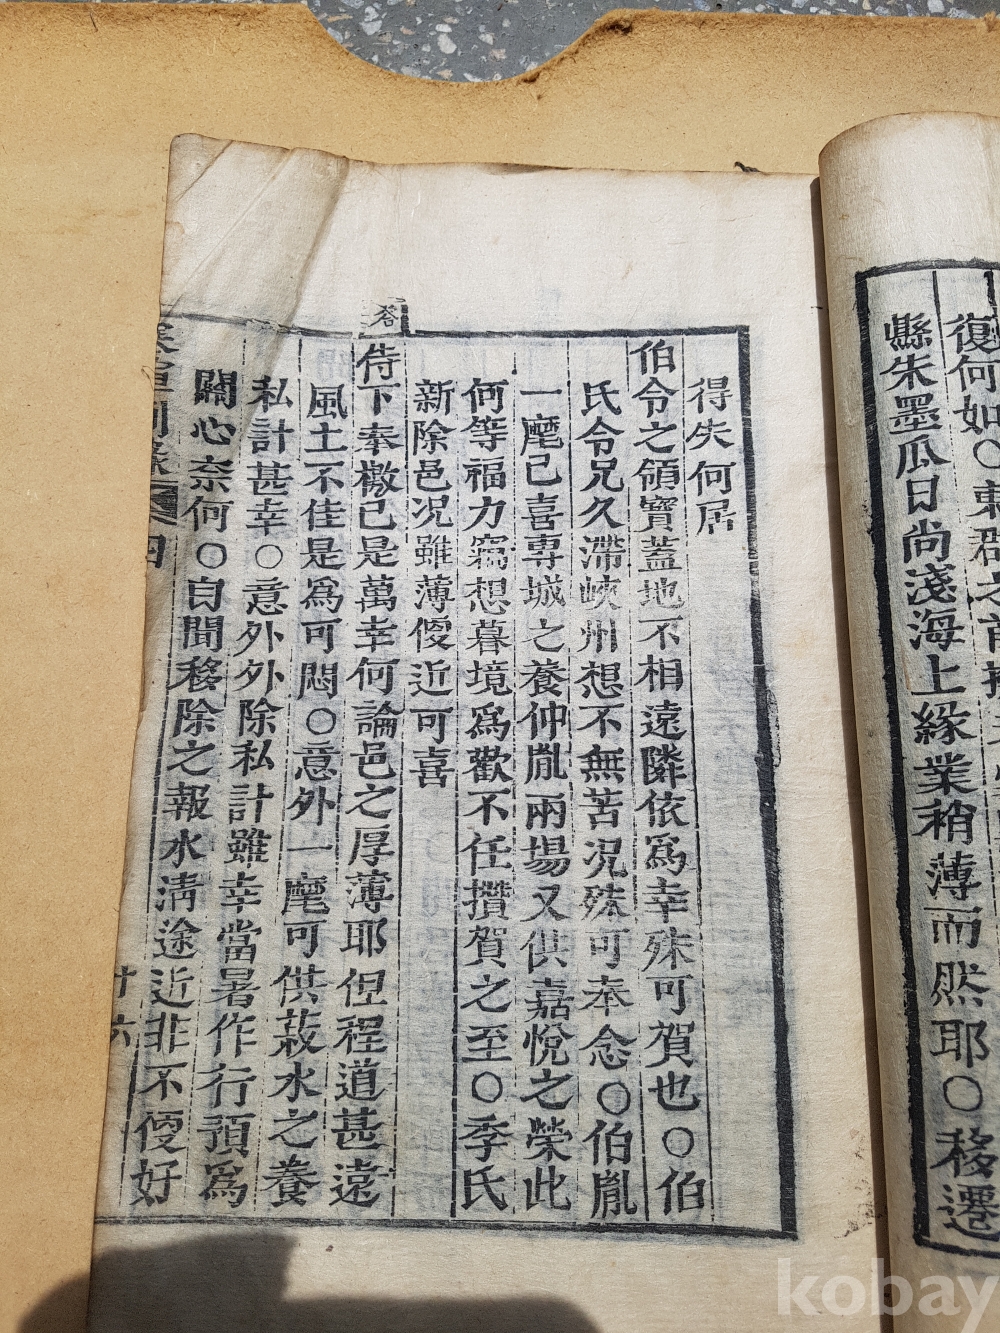 復何如○東郡之
縣朱墨瓜日尚淺海上緣業稍薄而然耶○移遷
得失何居
伯令之領寶蓋地不相遠隣依爲幸殊可賀也○伯
氏令兄久滯峽州想不無苦況殊可奉念○伯胤
一麾已喜專城之養仲胤兩場又俱嘉悅之榮此
何等福力竊想暮境爲歡不任攢賀之至○季氏
新除邑况雖薄傻近可喜
答
侍下奉檄已是萬幸何論邑之厚薄耶但程道甚遠
風土不佳是爲可悶○意外一麾可供菽水之養
私計甚幸○意外外除私計雖幸當暑作行預爲
關心奈何○自聞移除之報水淸途近非不傻好
寒喧箚錄 四
十六
kobay